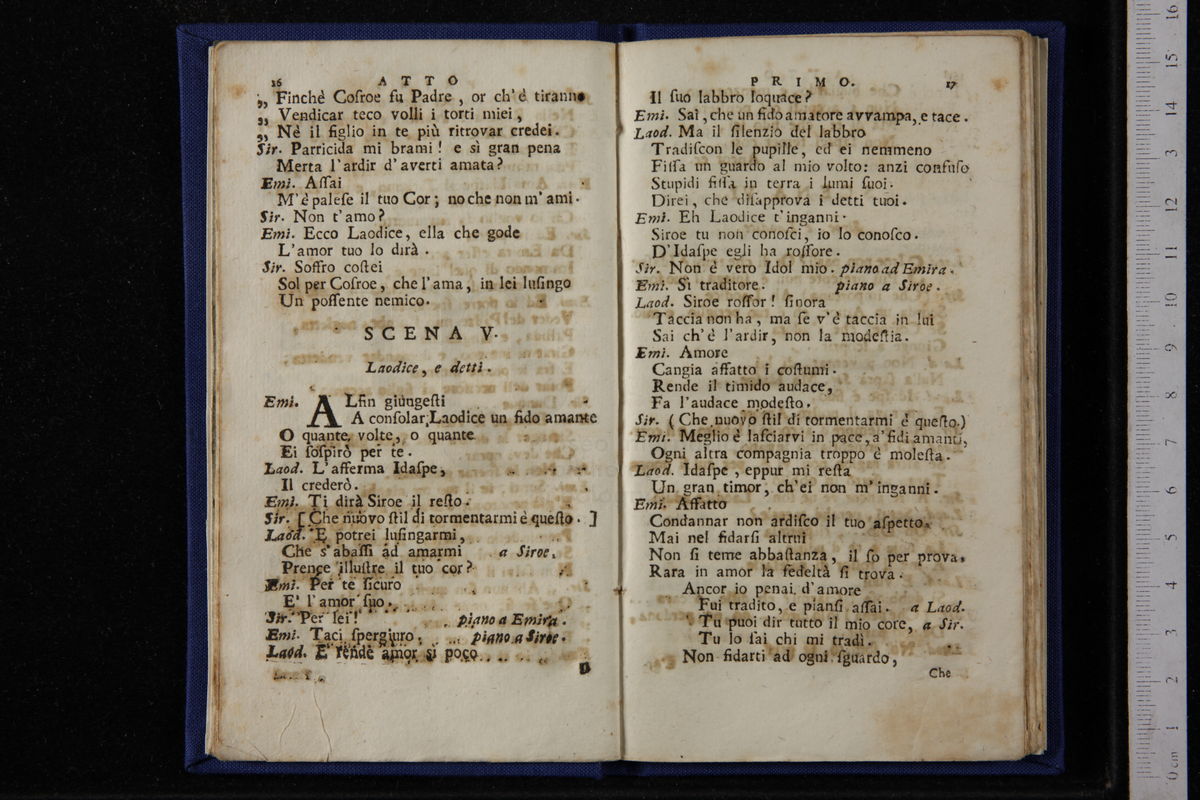 16 ATTO
„ Finchè Coſroe fu Padre , or ch'è tiranno
„ Vendicar teco volli i torti miei ,
„ Nè il figlio in te più ritrovar credei .
Sir. Parricida mi brami ! e sì gran pena
Merta l'ardir d'averti amata ?
Emi. Aſſai
M'è paleſe il tuo Cor ; no che non m'ami .
Sir. Non t'amo ?
Emi. Ecco Laodice , ella che gode
L'amor tuo lo dirà .
Sir. Soffro coſtei
Sol per Coſroe , che l'ama , in lei luſingo
Un poſſente nemico .
SCENA V.
Laodice , e detti .
Emi. ALfin giungeſti
A conſolar Laodice un fido amante
O quante volte , o quante
Ei ſoſpirò per te .
Laod. L'afferma Idaſpe ,
Il crederò .
Emi. Ti dirà Siroe il reſto .
Sir. [ Che nuovo ſtil di tormentarmi è queſto . ]
Laod. E potrei luſingarmi ,
Che s'abaſſi ad amarmi a Siroe .
Prence illuſtre il tuo cor ?
Emi. Per te ſicuro
E' l'amor ſuo .
Sir. Per lei ! piano a Emira .
Emi. Taci ſpergiuro . piano a Siroe .
Laod. E rende amor sì poco
Il
PRIMO. 17
Il ſuo labbro loquace ?
Emi. Sai , che un fido amatore avvampa , e tace .
Laod. Ma il ſilenzio del labbro
Tradiſcon le pupille , ed ei nemmeno
Fiſſa un guardo al mio volto : anzi confuſo
Stupidi fiſſa in terra i lumi ſuoi .
Direi , che diſapprova i detti tuoi .
Emi. Eh Laodice t'inganni .
Siroe tu non conoſci , io lo conoſco .
D'Idaſpe egli ha roſſore .
Sir. Non è vero Idol mio . piano ad Emira .
Emi. Sì traditore . piano a Siroe .
Laod. Siroe roſſor ! ſinora
Taccia non ha , ma ſe v'è taccia in lui
Sai ch'è l'ardir , non la modeſtia .
Emi. Amore
Cangia affatto i coſtumi .
Rende il timido audace ,
Fa l'audace modeſto .
Sir. ( Che nuovo ſtil di tormentarmi è queſto . )
Emi. Meglio è laſciarvi in pace , a' fidi amanti ,
Ogni altra compagnia troppo è moleſta .
Laod. Idaſpe , eppur mi reſta
Un gran timor , ch'ei non m'inganni .
Emi. Affatto
Condannar non ardiſco il tuo aſpetto .
Mai nel fidarſi altrui
Non ſi teme abbaſtanza , il ſo per prova .
Rara in amor la fedeltà ſi trova .
Ancor io penai d'amore
Fui tradito , e pianſi aſſai . a Laod.
Tu puoi dir tutto il mio core , a Sir.
Tu lo ſai chi mi tradì .
Non fidarti ad ogni ſguardo ,
Che
0 cm 1 2 3 4 5 6 7 8 9 10 11 12 3 14 15 16